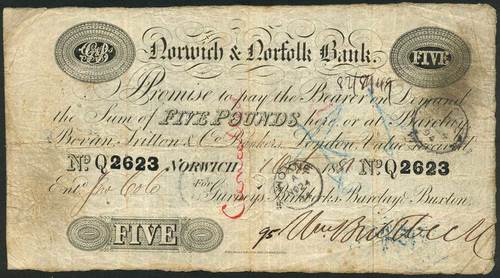 Norwich & Norfolk Bank.
FIVE
I Promise to pay the Bearer on Demand
the Sum of FIVE POUNDS here, or at Barclay
Bevan, Tritton & Co Bankers, London, Value received
No. Q2623 NORWICH No. Q2623
Entd
For
Gurneys, Birkbecks, Barclay & Buxton.
FIVE